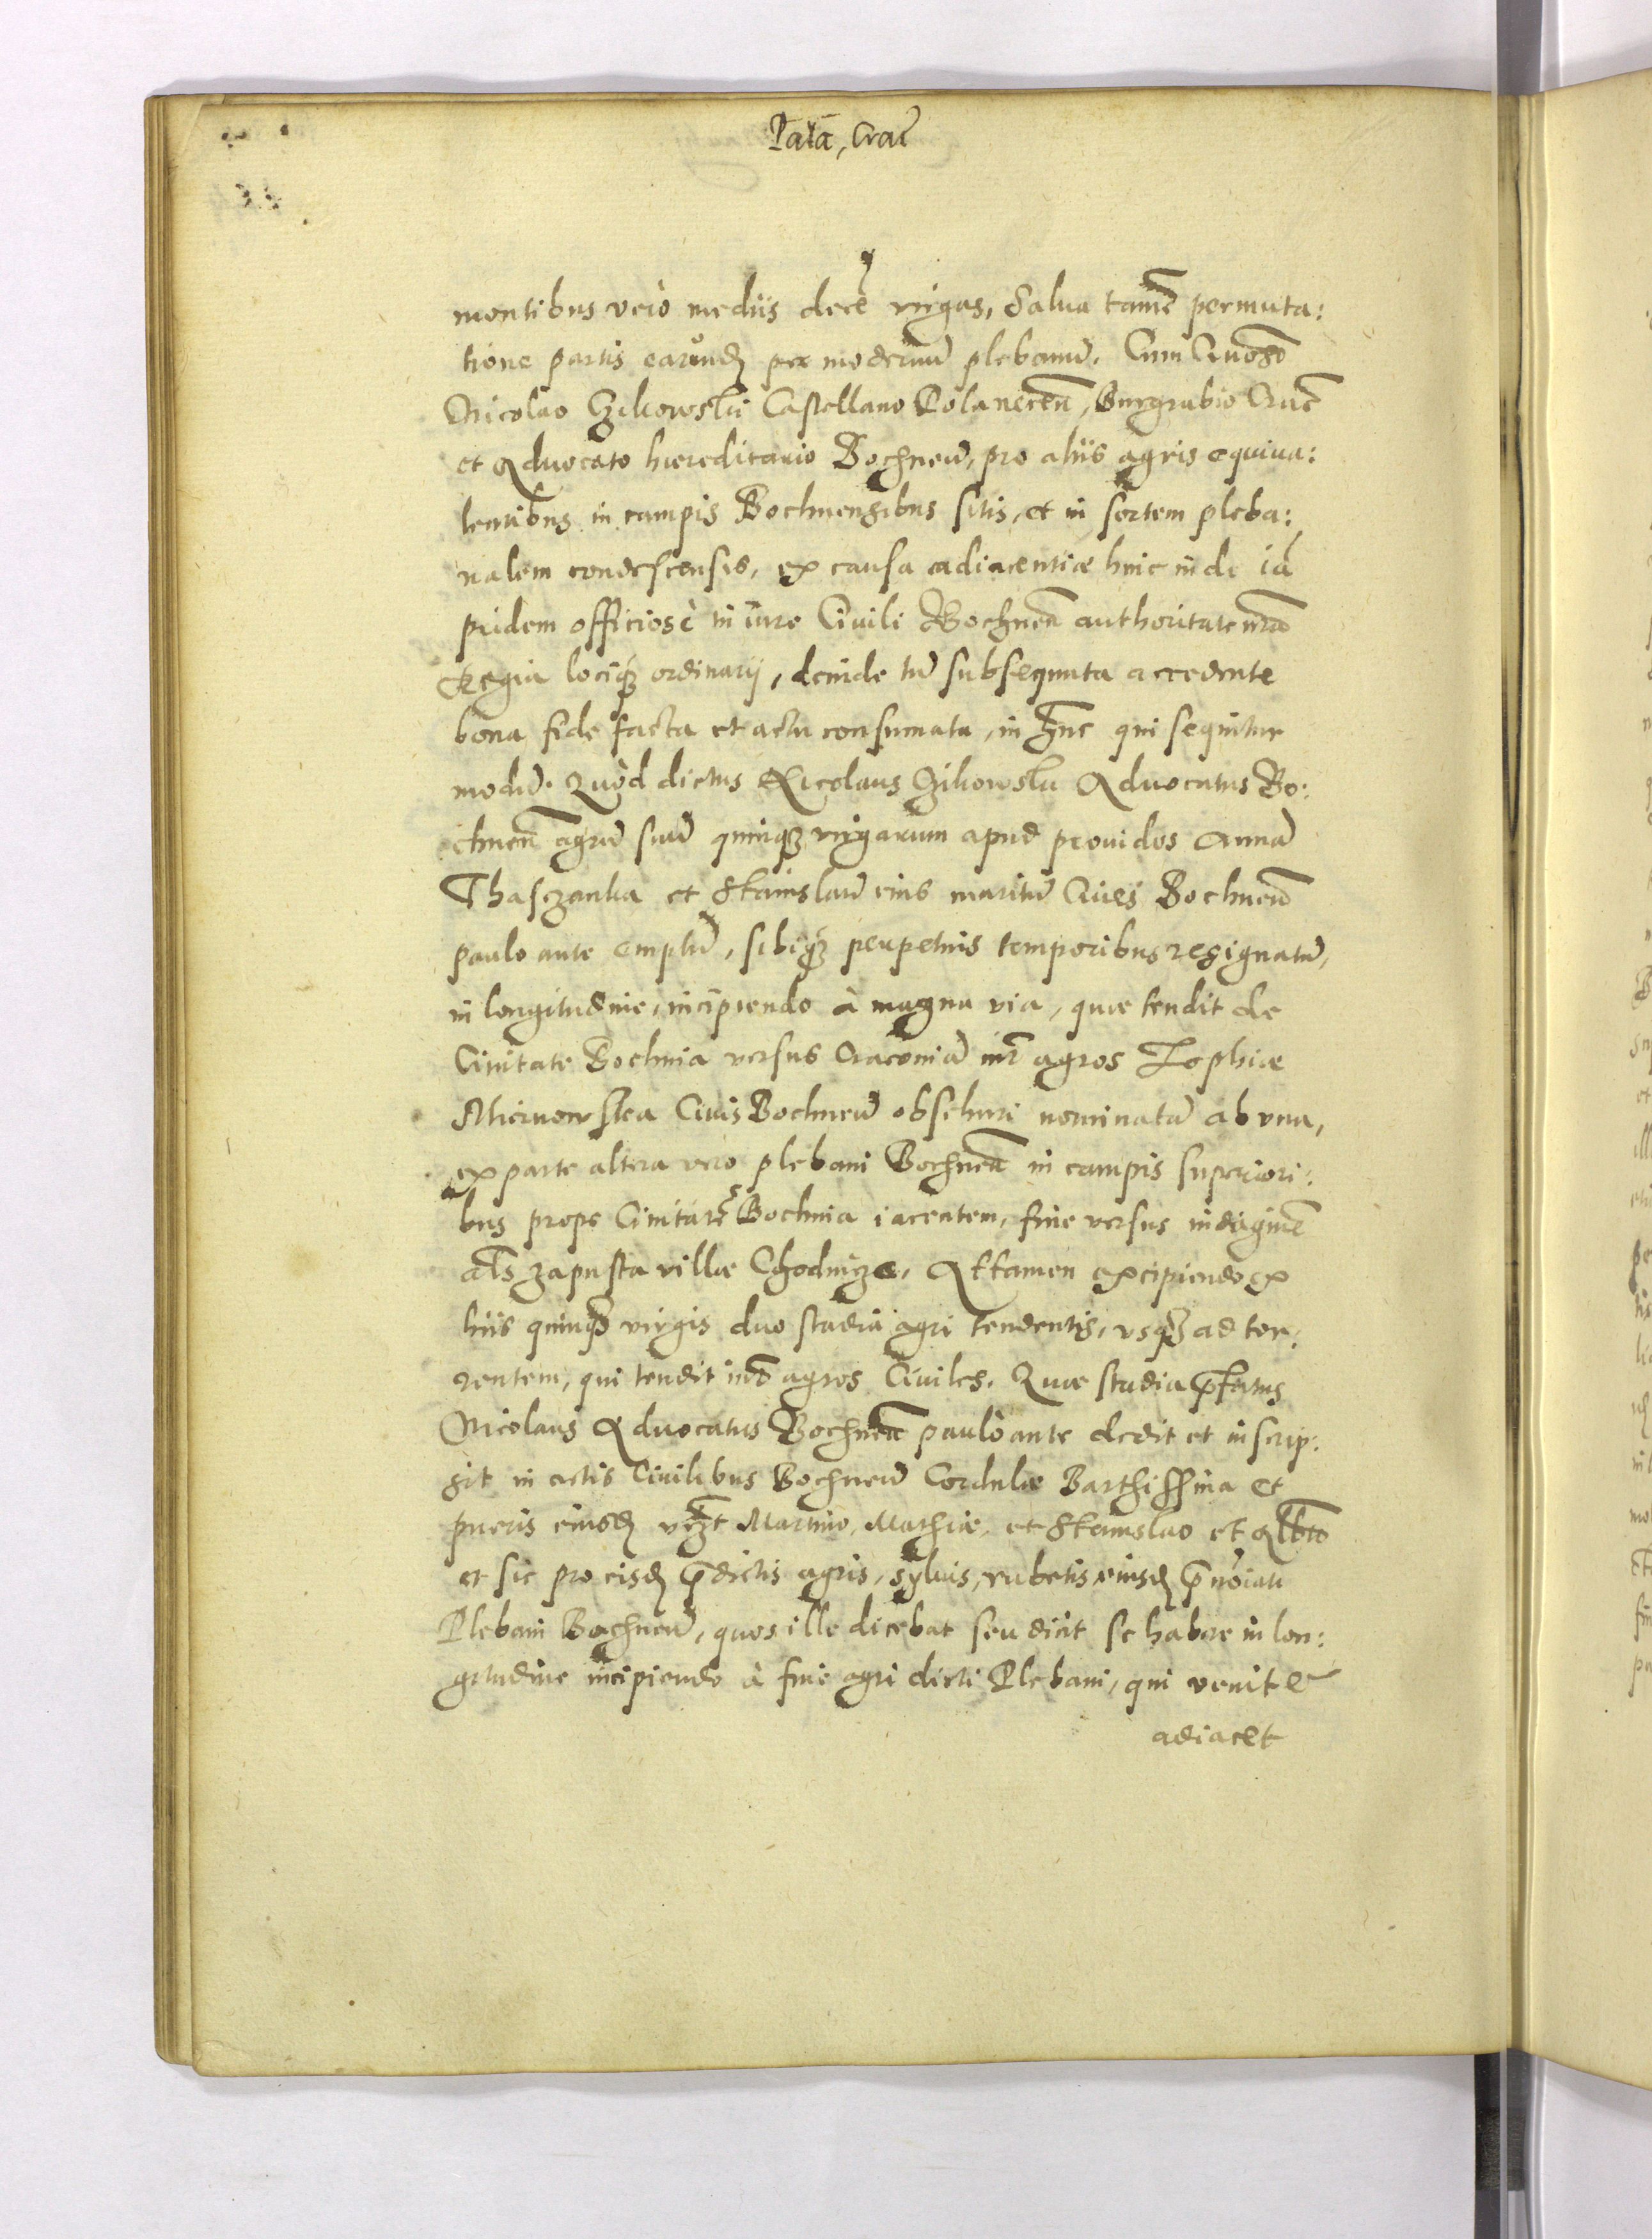 Palā, Crac̄
montibus verò mediis decē virgas, Salua tamē permuta:
tione partis earūnd per modernū plebanū. Cum Gnoso
Nicolao Czikowski Castellano Polanecen̄, Burgrabio Crac̄
et Aduocato hæreditario Bochnen̄, pro aliis agris equiua:
lentibus in campis Bochnensibus sitis, et in sortem pleba:
nalem condescensis, ex causa adiacentiæ hinc inde iā
pridem officiosè in iure Ciuili Bochnen̄ authoritate nr̄a
Regia lociq3 ordinarij, deinde tū subsequuta accedente
bona fide facta et actu consumata, in hunc qui sequitur
modū. Quòd dictus Nicolaus Czikowski Aduocatus Bo:
chnen̄ agrū suū quinq3 virgarum apud prouidos Annā
Thasczanka et Stanislaū eius maritū Ciues Bochnen̄
paulo ante emptū, sibiq3 perpetuis temporibus resignatū,
in longitudine, incipiendo à magna via, quæ tendit de
Ciuitate Bochnia versus Cracouiā intr̄ agros Zophiæ
Miernowska Ciuis Bochnen̄ obschuri nominatā ab vna,
ex parte altera vero plebani Bochnen̄ in campis superiori:
bus prope Ciuitatē Bochnia iacentem, fine versus indaginē
als zapusta villæ Chodnicze. Attamen excipiendo ex
hiis quinq3 virgis duo stadia agri tendentis, vsq3 ad tor:
rentem, qui tendit inter agros Ciuiles. Quæ stadia p̄fatus
Nicolaus Aduocatus Bochnen̄ paulò ante dedit et inscrip:
sit in actis Ciuilibus Bochnen̄ Cordulæ Barthissina et
pueris eiusd vzt Martino, Mathiæ, et Stanislao et Albto
et sic pro eisd p̄dictis agris, syluis, rubetis eiusd p̄noīati
Plebani Bochnen̄, quos ille dicebat seu dicit se habere in lon:
gitudine incipiendo à fine agri dicti Plebani, qui venit &
adiacet